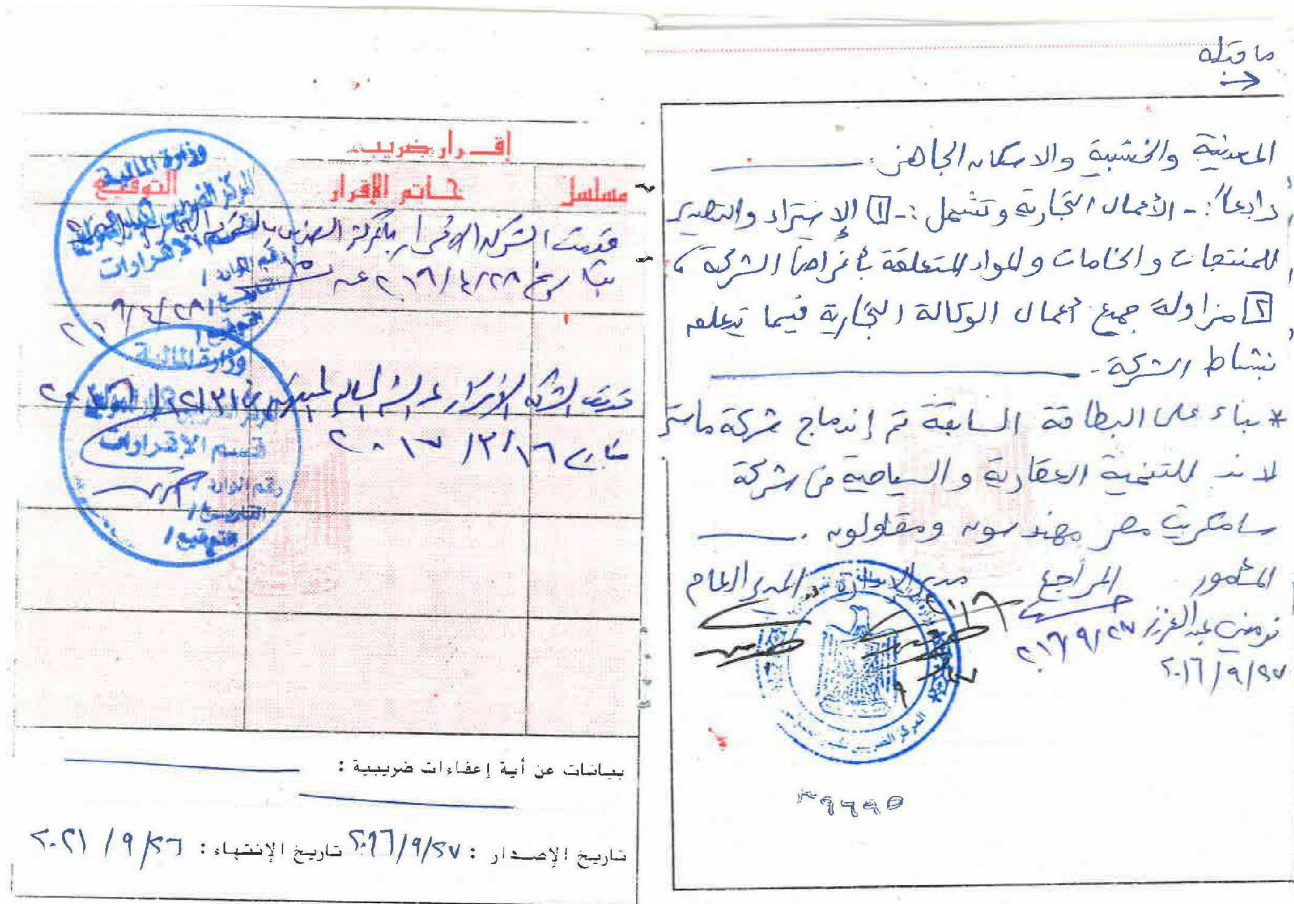 ما قبله
المعدنية والخشبية والاسكان الجاهز.
رابعاً :- الأعمال التجارية وتشمل :- [١] الإستيراد والتصدير
للمنتجات والخامات والمواد المتعلقة بأغراض الشركة ،
[٢] مزاولة جميع أعمال الوكالة التجارية فيما يتعلق
بنشاط الشركة .
* بناء على البطاقة السابقة تم إندماج شركة ماستر
لاند للتنمية العقارية والسياحية من شركة
سامكريت مصر مهندسون ومقاولون .
المأمور المراجع مدير الإدارة المدير العام
نرمين عبدالعزيز
٢٠١٦/٩/٢٧ ٢٠١٦/٩/٢٧
المركز الضريبي
٣٩٦٩٥
إقرار ضريبى
مسلسل خاتم الإقرار التوقيع
وزارة المالية
قسم الاقرارات
رقم الوارد /
قدمت الشركة الاقرار بالمركز الضريبى
بتاريخ ٢٠١٦/٤/٢٨ عن
التاريخ / ٢٨/٤/
التوقيع /
وزارة المالية
قدمت الشركة الإقرار عن
بتاريخ ٢٠١٧/٣/١٦
قسم الاقرارات
رقم الوارد /
التاريخ /
التوقيع /
بيانات عن أية إعفاءات ضريبية :
تاريخ الإصدار : ٢٠١٦/٩/٢٧ تاريخ الإنتهاء : ٢٠٢١/٩/٢٦